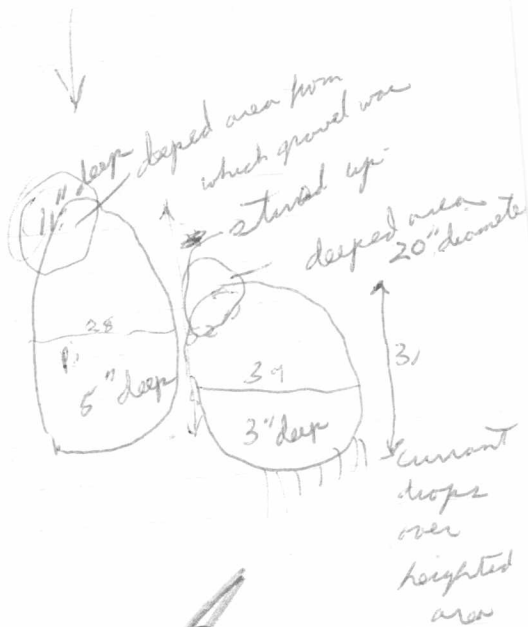 11" deep
deeped area from
which gravel was
stirred up
deeped area
20" diameter
28
5" deep
39
3" deep
currant
drops
over
heighted
area